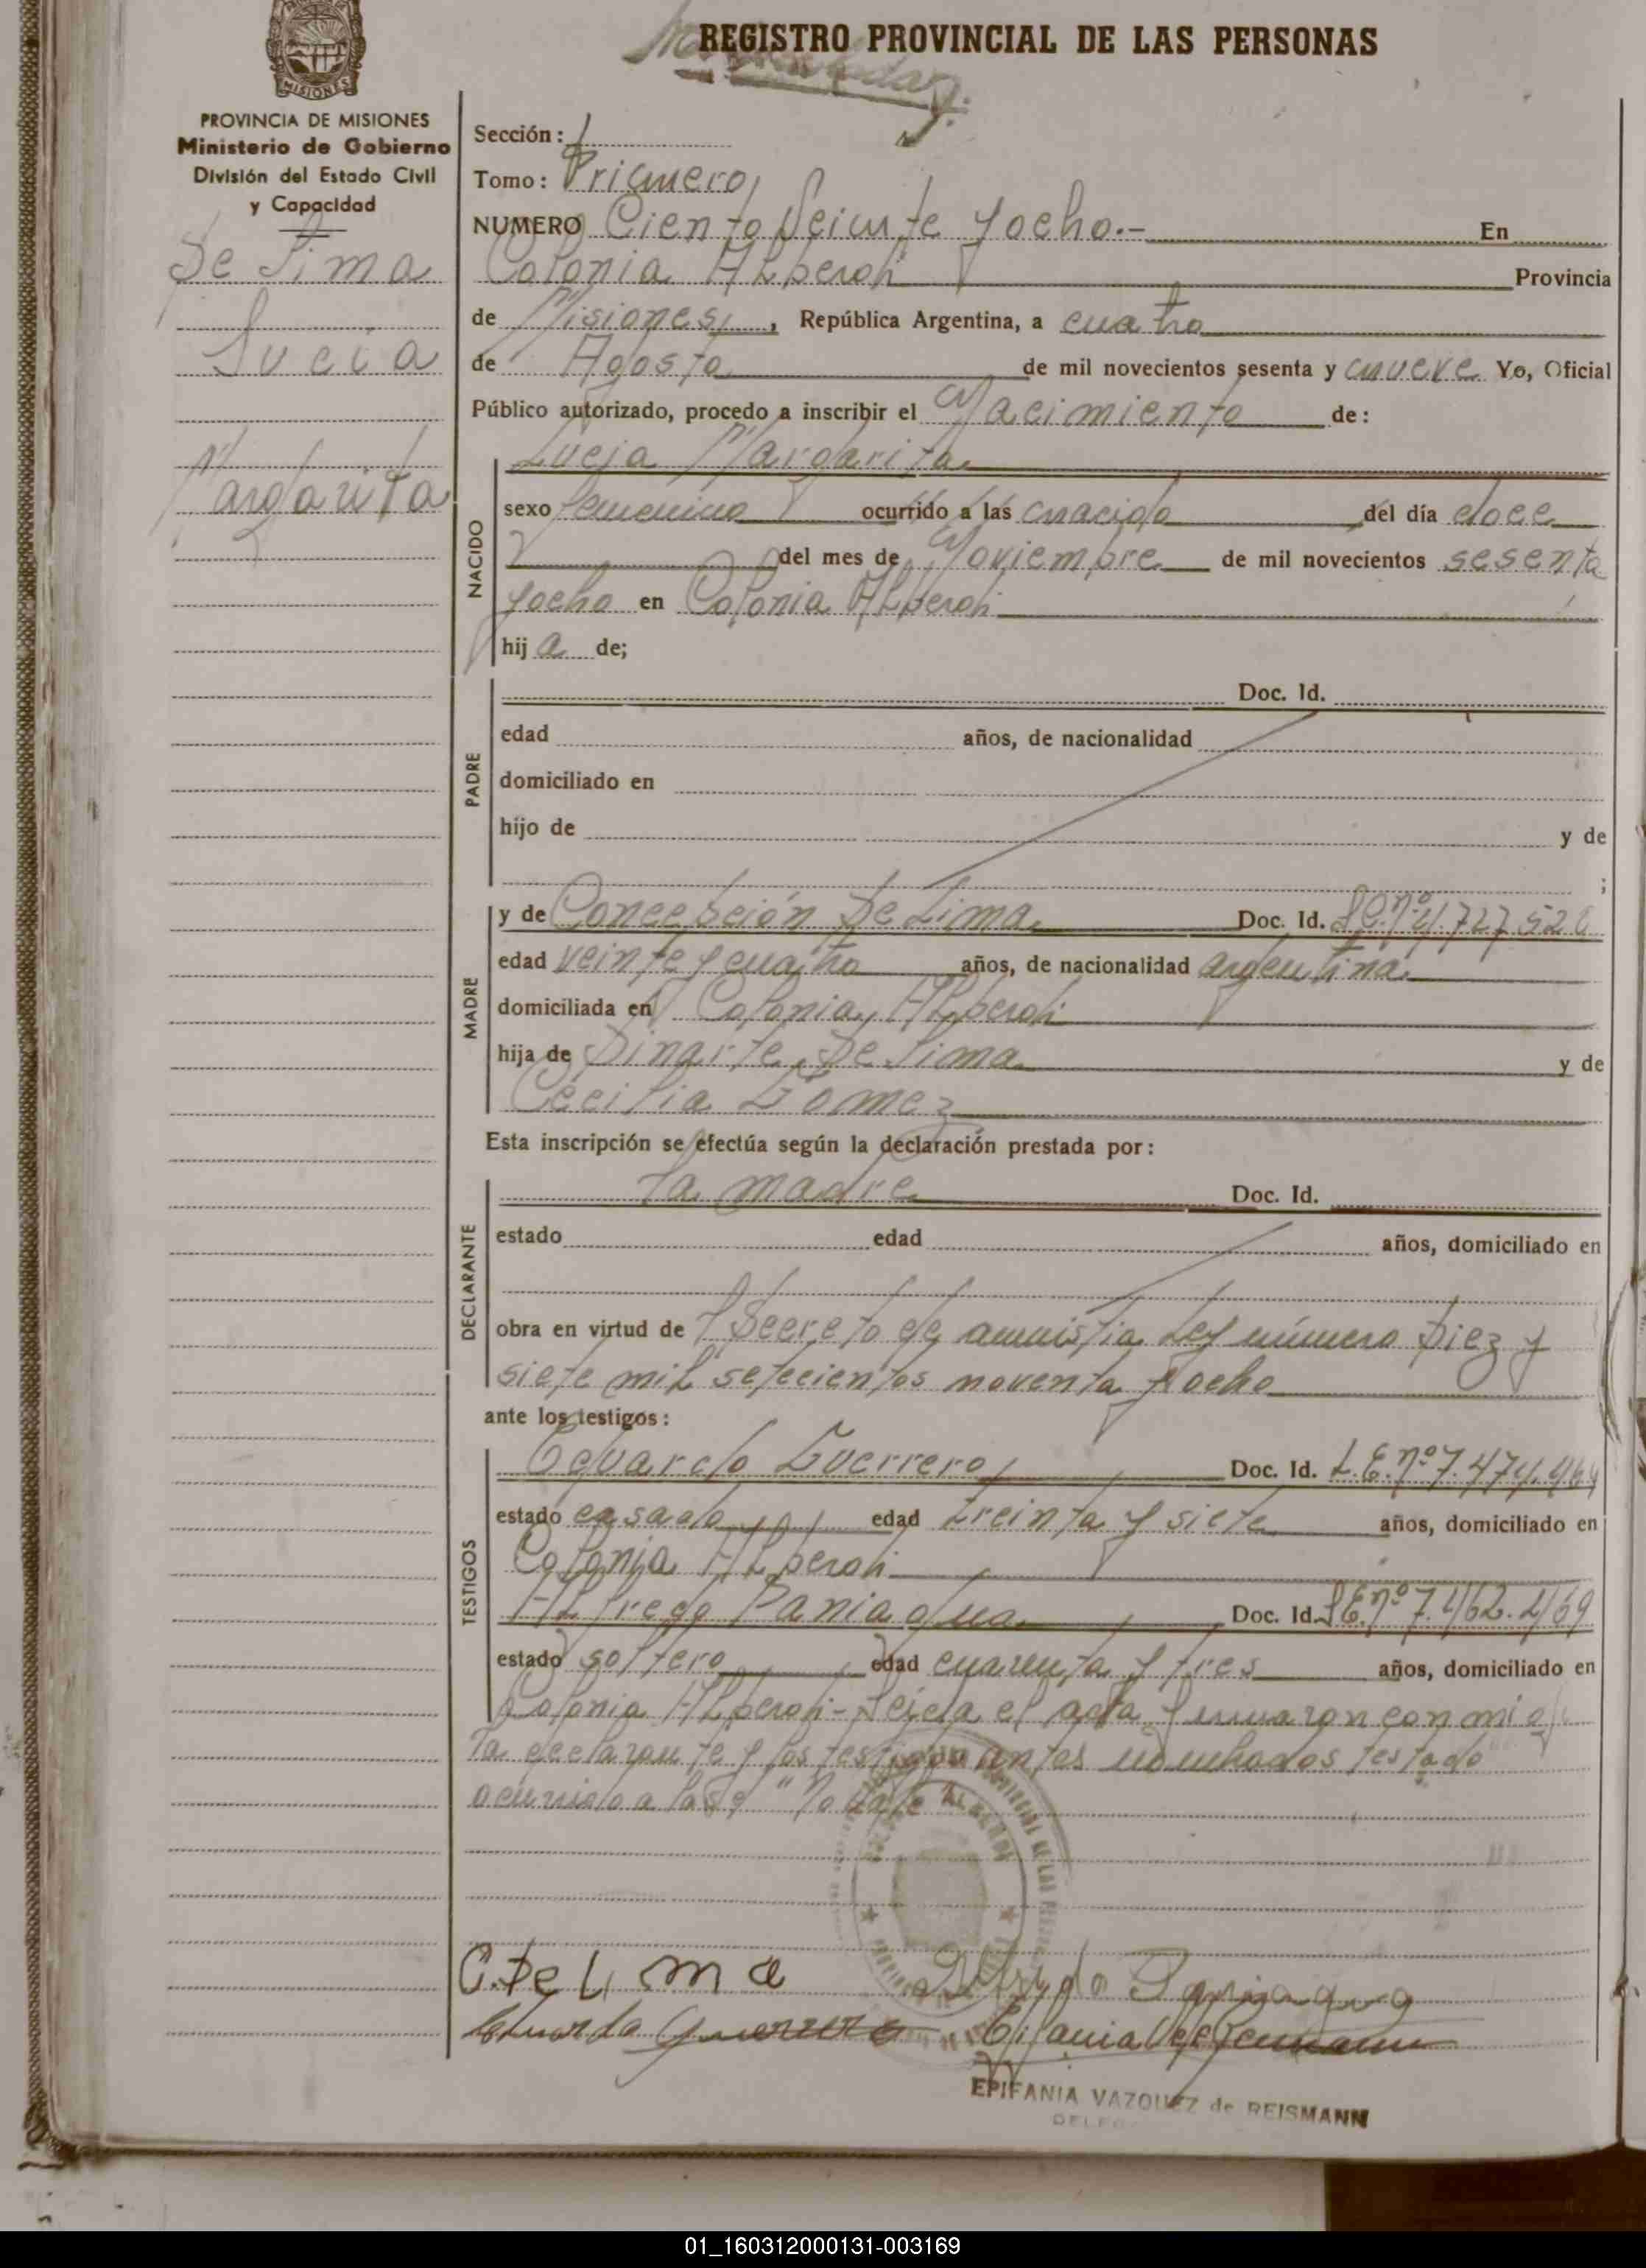 REGISTRO PROVINCIAL DE LAS PERSONAS
MISIONES
PROVINCIA DE MISIONES
Ministerio de Gobierno
División del Estado Civil
y Capacidad
De Lima
Lucia
Margarita
Sección: 1
Tomo: Primero
NUMERO Ciento Veinte y ocho.- En
Colonia Alberdi Provincia
de Misiones, República Argentina, a cuatro
de Agosto de mil novecientos sesenta y nueve Yo, Oficial
Público autorizado, procedo a inscribir el Nacimiento de:
Lucia Margarita
NACIDO
sexo femenino ocurrido a las nacida del día doce
del mes de Noviembre de mil novecientos sesenta
y ocho en Colonia Alberdi
hij a de;
PADRE
Doc. Id.
edad años, de nacionalidad
domiciliado en
hijo de y de
;
MADRE
y de Concebción De Lima Doc. Id.
edad veinte y cuatro años, de nacionalidad argentina
domiciliada en Colonia Alberdi
hija de Dinarte De Lima y de
Cecilia Gomez
Esta inscripción se efectúa según la declaración prestada por:
DECLARANTE
la madre Doc. Id.
estado edad años, domiciliado en
obra en virtud de Decreto de amnistia Ley número Diez y
siete mil setecientos noventa y ocho
ante los testigos:
TESTIGOS
Eduardo Guerrero Doc. Id. L.E. nº 7.474.464
estado casado edad treinta y siete años, domiciliado en
Colonia Alberdi
Alfredo Paniagua Doc. Id. L.E. nº 7.462.469
estado soltero edad cuarenta y tres años, domiciliado en
Colonia Alberdi - Leida el acta firmaron conmigo
la declarante y los testigos antes nombrados testado
ocurrido a las "No vale
C. De Lima Alfredo Paniagua
Eduardo Guerrero Epifania V de Reismann
EPIFANIA VAZQUEZ de REISMANN
01_160312000131-003169